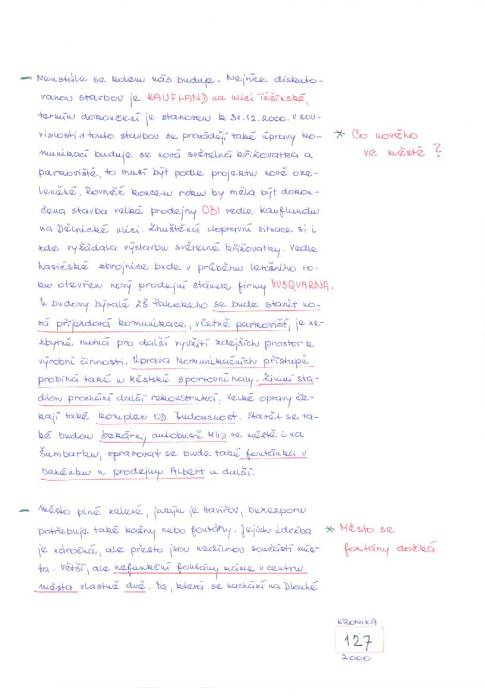 – Neustále se kolem nás buduje. Nejvíce diskuto-
vanou stavbou je KAUFLAND na ulici Těšínské,
termín dokončení je stanoven k 31.12.2000. V sou-
vislosti s touto stavbou se provádějí také úpravy ko-
munikací buduje se nová světelná křižovatka a
parkoviště, to musí být podle projektu nově oze-
leněné. Rovněž koncem roku by měla být dokon-
čena stavba velké prodejny OBI vedle Kauflandu
na Dělnické ulici. Zhuštěná dopravní situace si i
zde vyžádala výstavbu světelné křižovatky. Vedle
hasičské zbrojnice bude v průběhu letošního ro-
ku otevřen nový prodejní stánek firmy HUSQVARNA.
K budovy bývalé ZŠ Palackého se bude stavět no-
vá příjezdová komunikace, včetně parkovišť, je ne-
zbytně nutná pro další využití zdejších prostor a
výrobní činnosti. Úprava komunikačních přístupů
probíhá také u Městské sportovní haly. Zimní sta-
dion prochází další rekonstrukcí. Velké opravy če-
kají také komplex OD Budoucnost. Stavět se ta-
ké budou čekárny autobusů MHD ve městě i na
Šumbarku, opravovat se bude také fontánka v
bazénku u prodejny Albert a další.
* Co nového
ve městě?
– Město plné zeleně, jakým je Havířov, bezesporu
potřebuje také kašny nebo fontány. Jejich údržba
je náročná, ale přesto jsou nedílnou součástí měs-
ta. Větší, ale nefunkční fontány máme v centru
města vlastně dvě. Ta, která se nachází na Dlouhé
* Město se
fontány dočká
KRONIKA
127
2000